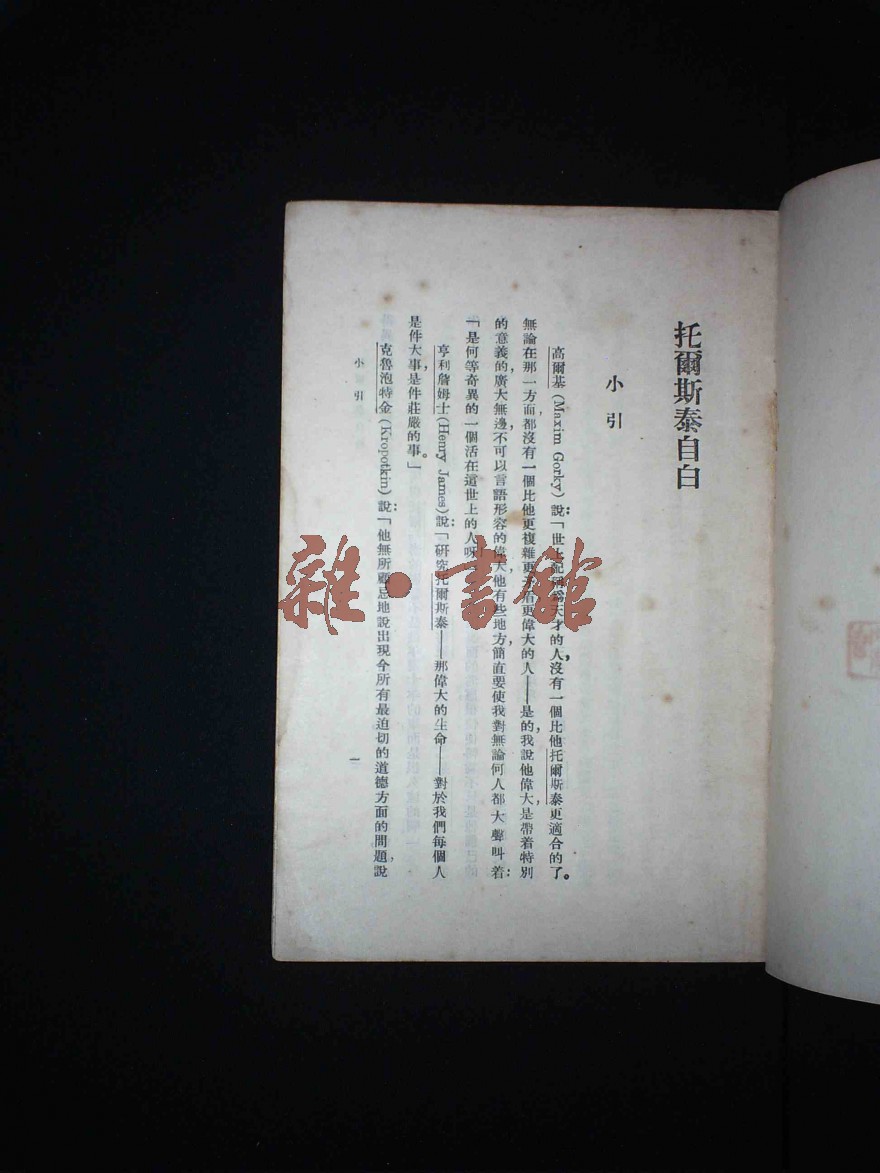 托爾斯泰自白
小引
高爾基(Maxim Gorky)說：「世上配稱爲天才的人，沒有一個比他托爾斯泰更適合的了。
無論在那一方面，都沒有一個比他更複雜更矛盾更偉大的人——是的，我說他偉大，是帶着特別
的意義的，廣大無邊，不可以言語形容的偉大，他有些地方，簡直要使我對無論何人都大聲叫着：
「是何等奇異的一個活在這世上的人呀
亨利詹姆士(Henry James)說：「研究托爾斯泰——那偉大的生命——對於我們每個人
是件大事，是件莊嚴的事。」
克魯泡特金(Kropotkin)說：「他無所顧忌地說出現今所有最迫切的道德方面的問題，說
小引
一
雜·書館